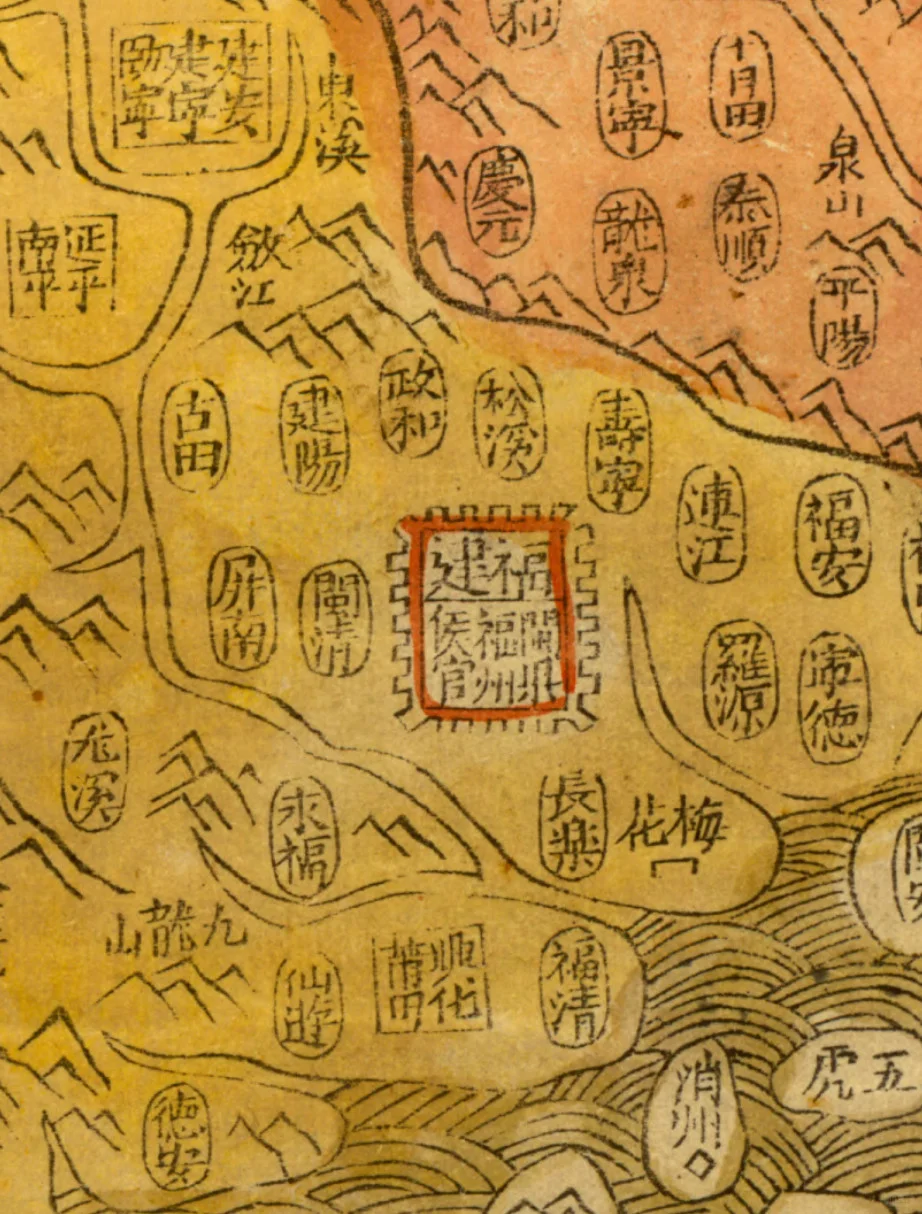 和
景寧
青田
泉山
慶元
龍泉
泰順
平陽
建安
建寧
東溪
延平
南平
江
壽寧
松溪
政和
建陽
古田
福安
連江
福建
閩県
福州
侯官
閩清
屏南
寧徳
羅源
尤溪
永福
長樂
梅花
九龍山
福清
興化
莆田
仙遊
五虎
消州
徳安